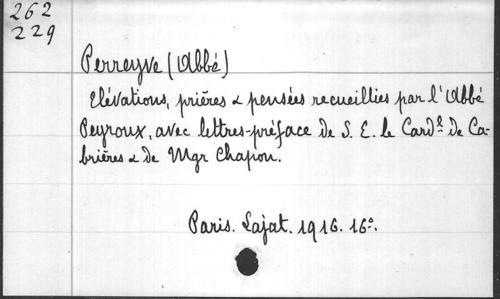 262
229
Perreyve (Abbé)
Elévations, prières & pensées recueillies par l'Abbé
Peyroux, avec lettres-préface de S. E. le Card.l de Ca-
brières & de Mgr Chapon.
Paris. Lajat. 1916. 16o.